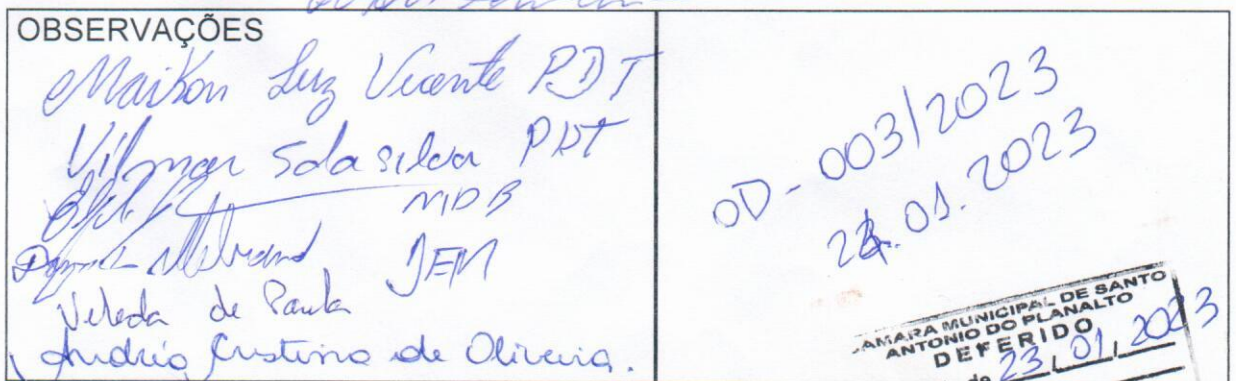 OBSERVAÇÕES
Maikon Luz Vicente PDT
Vilmar S da Silva PDT
MDB
DEM
Veleda de Paula
Andréia Cristina de Oliveira.
OD-003/2023
01.2023
CAMARA MUNICIPAL DE SANTO
ANTONIO DO PLANALTO
DEFERIDO
de 23/01/2023